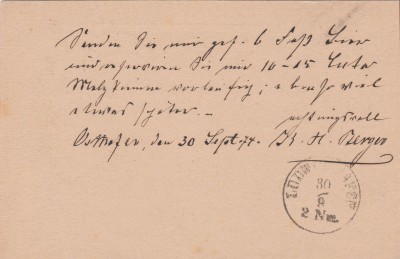 Senden Sie mir gef. 6 Faß Bier
und reserviren Sie mir 10-15 Cntr
Malzkeime vorläufig; ebenso viel
etwas später. -
achtungsvoll
Osthofen, den 30 Sept. 74. H. Berger
30
9
2 Nm.